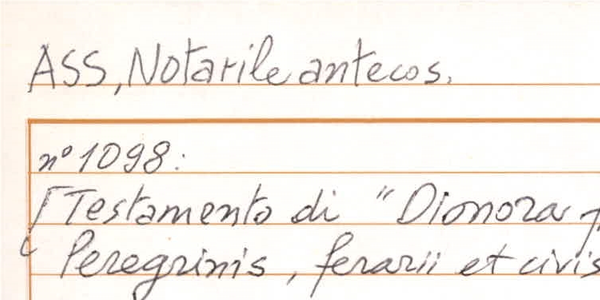 ASS, Notarile antecos.
n° 1098:
[Testamento di "Dionora
Peregrinis, ferarii et civis